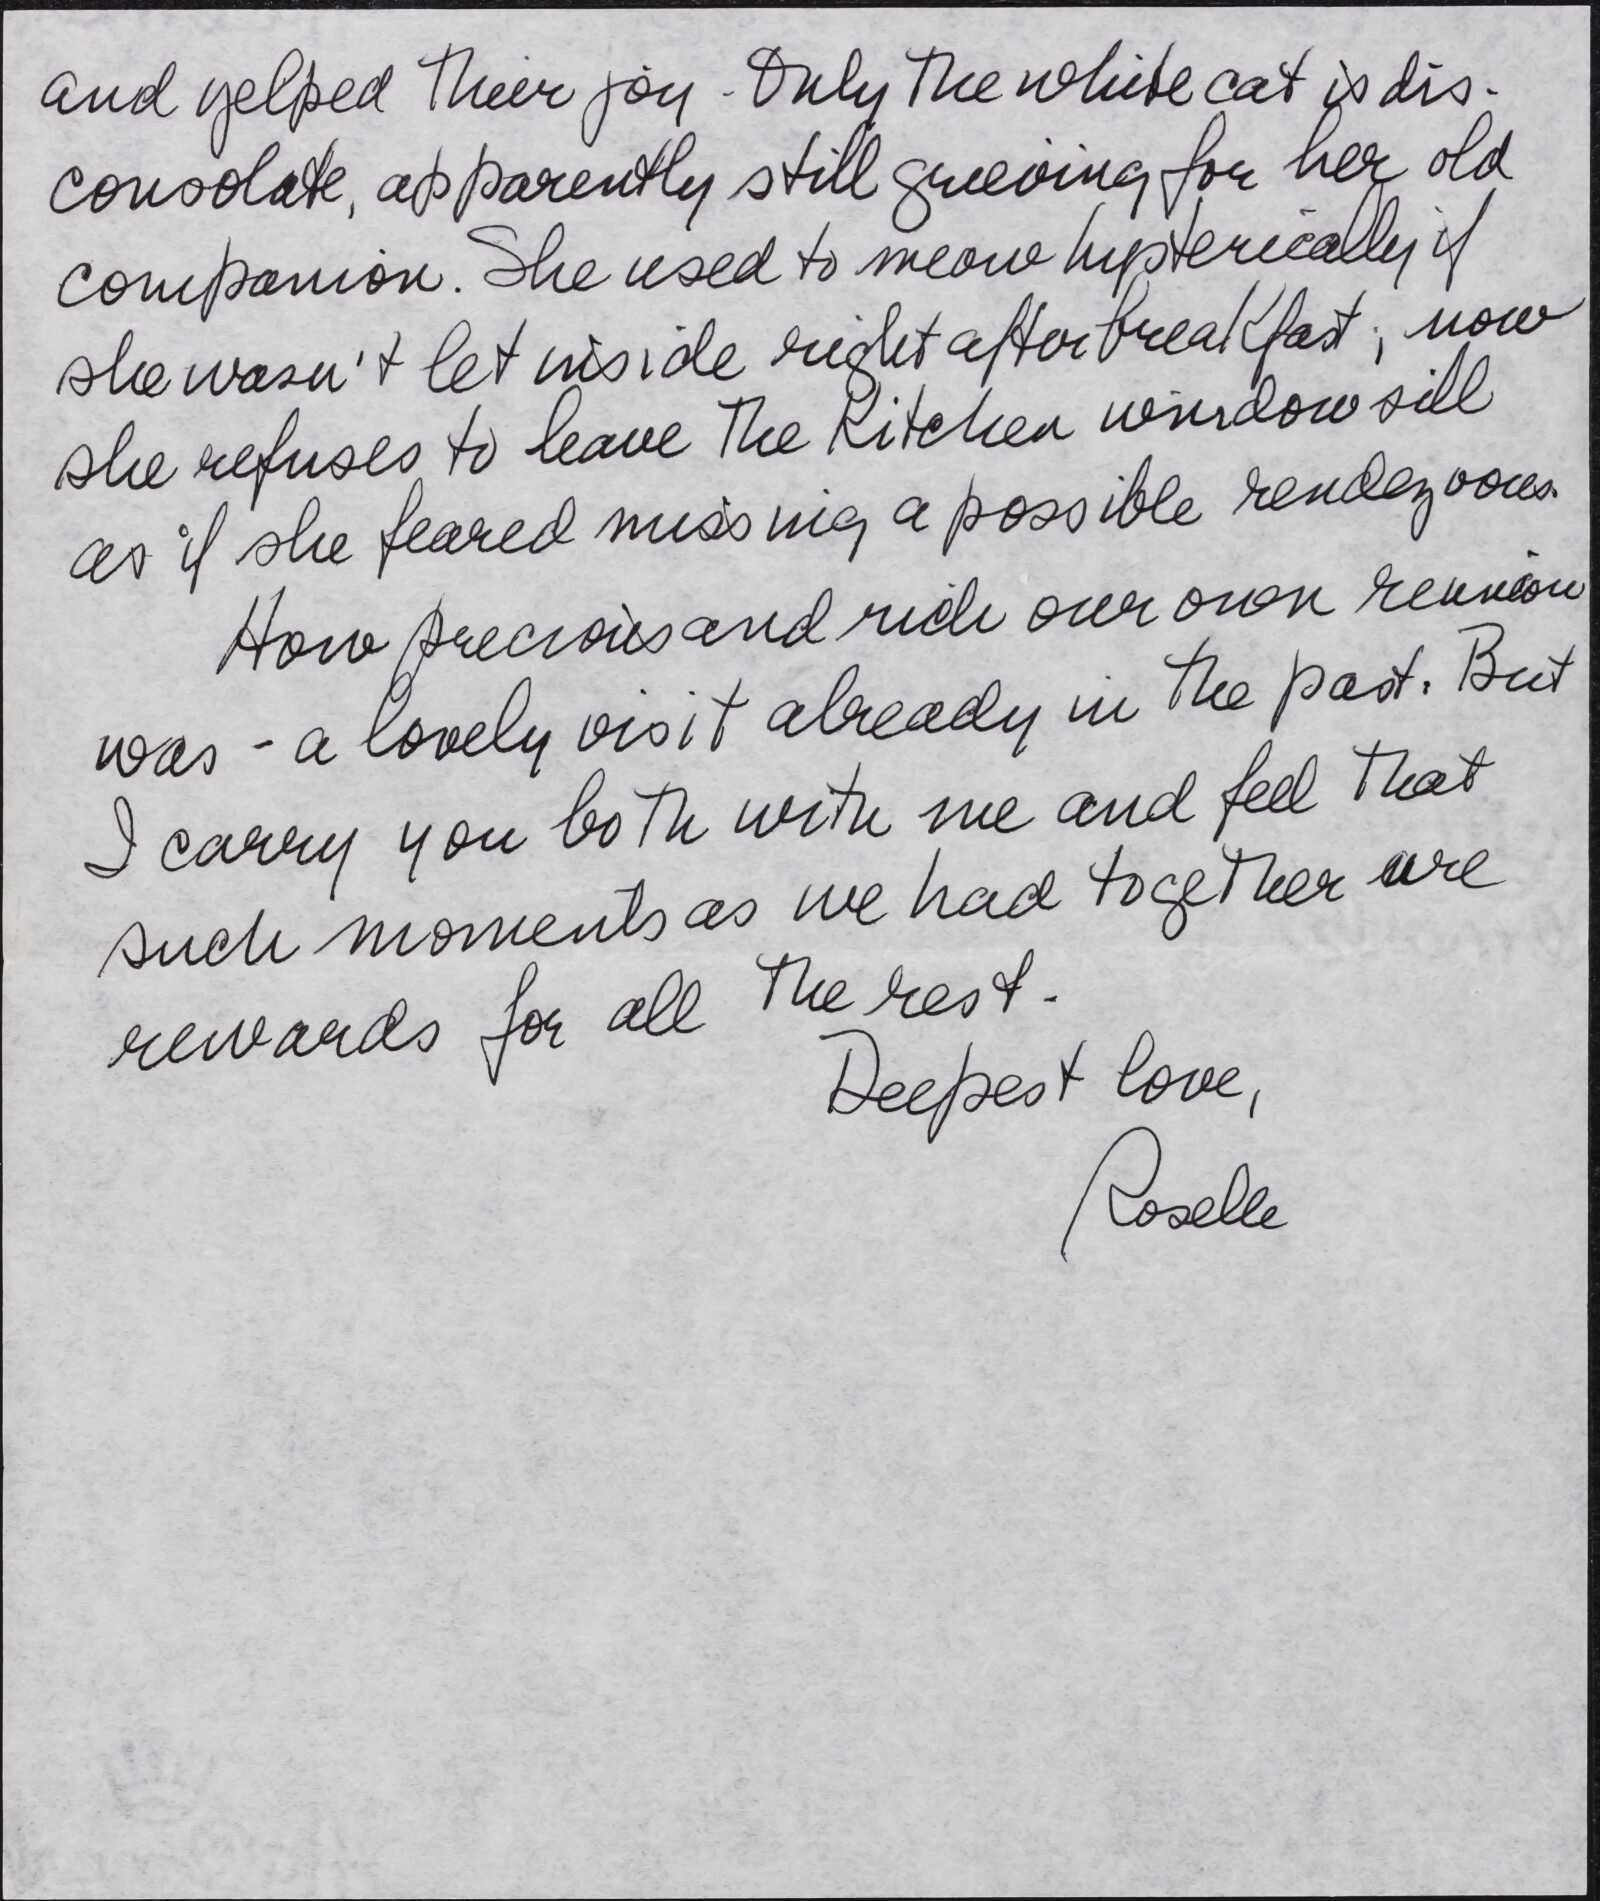 and yelped their joy - Only the white cat is dis-
consolate, apparently still grieving for her old
companion. She used to meow hysterically if
she wasn't let inside right after breakfast; now
she refuses to leave the kitchen window sill
as if she feared missing a possible rendezvous.
How precious and rich our own reunion
was - a lovely visit already in the past. But
I carry you both with me and feel that
such moments as we had together are
rewards for all the rest.
Deepest love,
Roselle